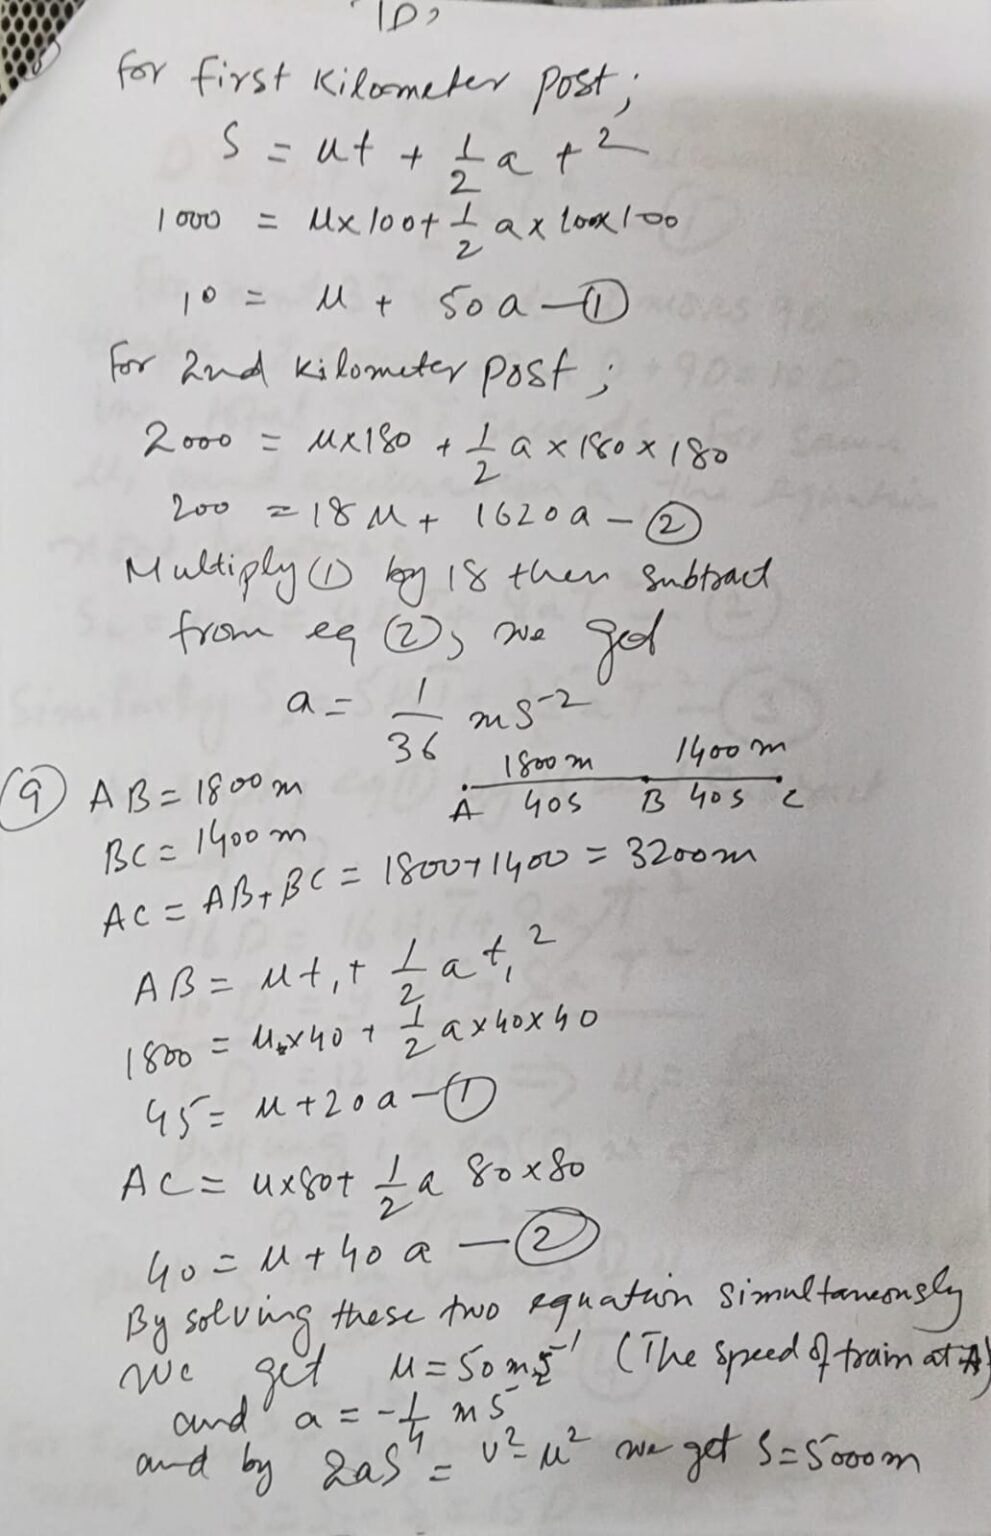 for first Kiloometer post;
S = ut + 1/2 a t²
1000 = u×100 + 1/2 a×100×100
10 = u + 50a — ①
For 2nd kilometer post;
2000 = u×180 + 1/2 a×180×180
200 = 18u + 1620a — ②
Multiply ① by 18 then subtract
from eq ②, we get
a = 1/36 ms⁻²
1800m 1400m
A 40s B 40s C
⑨ AB = 1800m
BC = 1400m
AC = AB + BC = 1800 + 1400 = 3200m
AB = ut₁ + 1/2 at₁²
1800 = u×40 + 1/2 a×40×40
45 = u + 20a — ①
AC = u×80 + 1/2 a 80×80
40 = u + 40a — ②
By solving these two equation simultaneously
we get u = 50 ms⁻¹ (The speed of train at A)
and a = -1/4 ms⁻²
and by 2aS = v² - u² we get S = 5000m